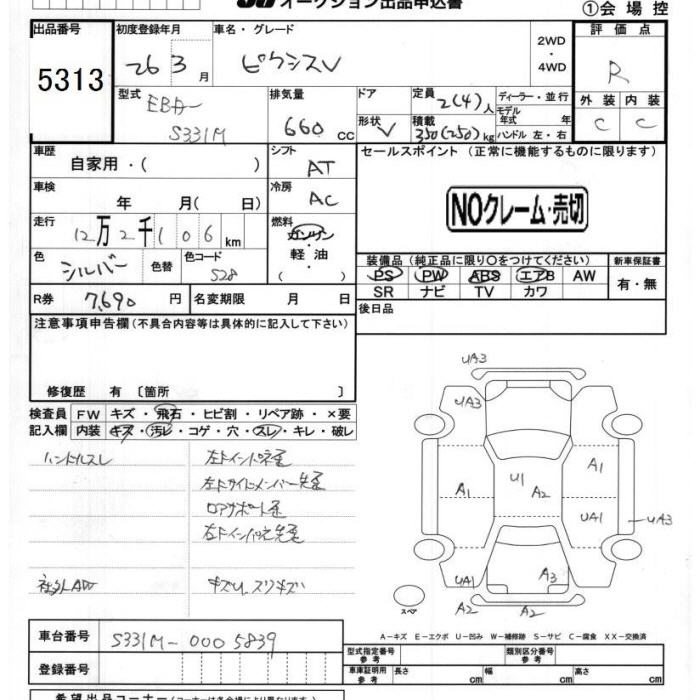 オークション出品申込書
①会場控
出品番号
5313
初度登録年月
26 3月
車名・グレード
ピクシスV
2WD
・
4WD
評価点
R
外装 内装
C C
型式
EBD-
S331M
排気量
660 cc
ドア
形状 V
定員 2(4)人
積載 350(250)kg
ディーラー・並行
モデル年式 年
ハンドル 左・右
車歴
自家用・( )
シフト
AT
セールスポイント (正常に機能するものに限ります)
NOクレーム・売切
車検
年 月( 日)
冷房
AC
走行
12万2千106 km
燃料
ガソリン
・
軽油
・
( )
色
シルバー
色替
色コード
S28
装備品(純正品に限り〇をつけてください)
PS PW ABS エアB AW
SR ナビ TV カワ
新車保証書
有・無
R券 7,690 円
名変期限 月 日
後日品
注意事項申告欄(不具合内容等は具体的に記入して下さい)
修復歴 有 〔箇所 〕
検査員
記入欄
FW キズ・飛石・ヒビ割・リペア跡・×要
内装 キズ・汚レ・コゲ・穴・スレ・キレ・破レ
ハンドルスレ
社外AW
キズU、スリキズ
UA3
UA3
A1
A1
U1
A2
UA1
UA3
UA1
A3
A2
A2
スペア
A-キズ E-エクボ U-凹み W-補修跡 S-サビ C-腐食 XX-交換済
車台番号
S331M-0005839
登録番号
型式指定番号
参考
類別区分番号
参考
車庫証明用
参考
長さ cm
幅 cm
高さ cm
希望出品コーナー